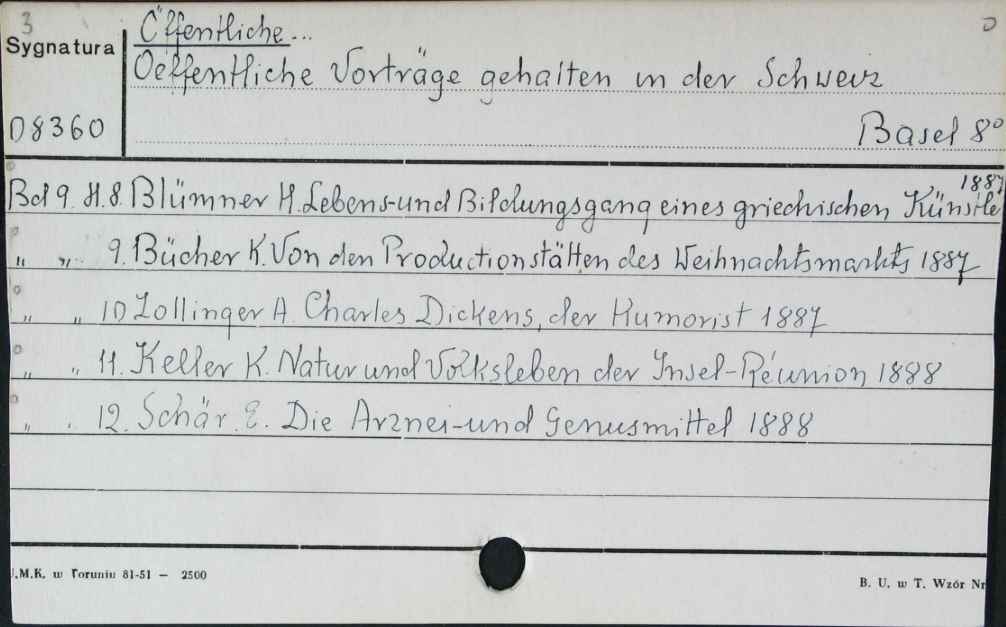 3
Öffentliche...
Sygnatura
Oeffentliche Vorträge gehalten in der Schweiz
D8360
Basel 8°
1887
Bd 9. H. 8. Blümner H. Lebens-und Bildungsgang eines griechischen Künstle
" " 9. Bücher K. Von den Productionstätten des Weihnachtsmarkts 1887
" " 10 Zollinger A. Charles Dickens, der Humorist 1887
" " 11. Keller K. Natur und Volksleben der Insel-Réunion 1888
" " 12. Schär E. Die Arznei-und Genusmittel 1888
U.M.K. w Toruniu 81-51 — 2500
B. U. w T. Wzór Nr